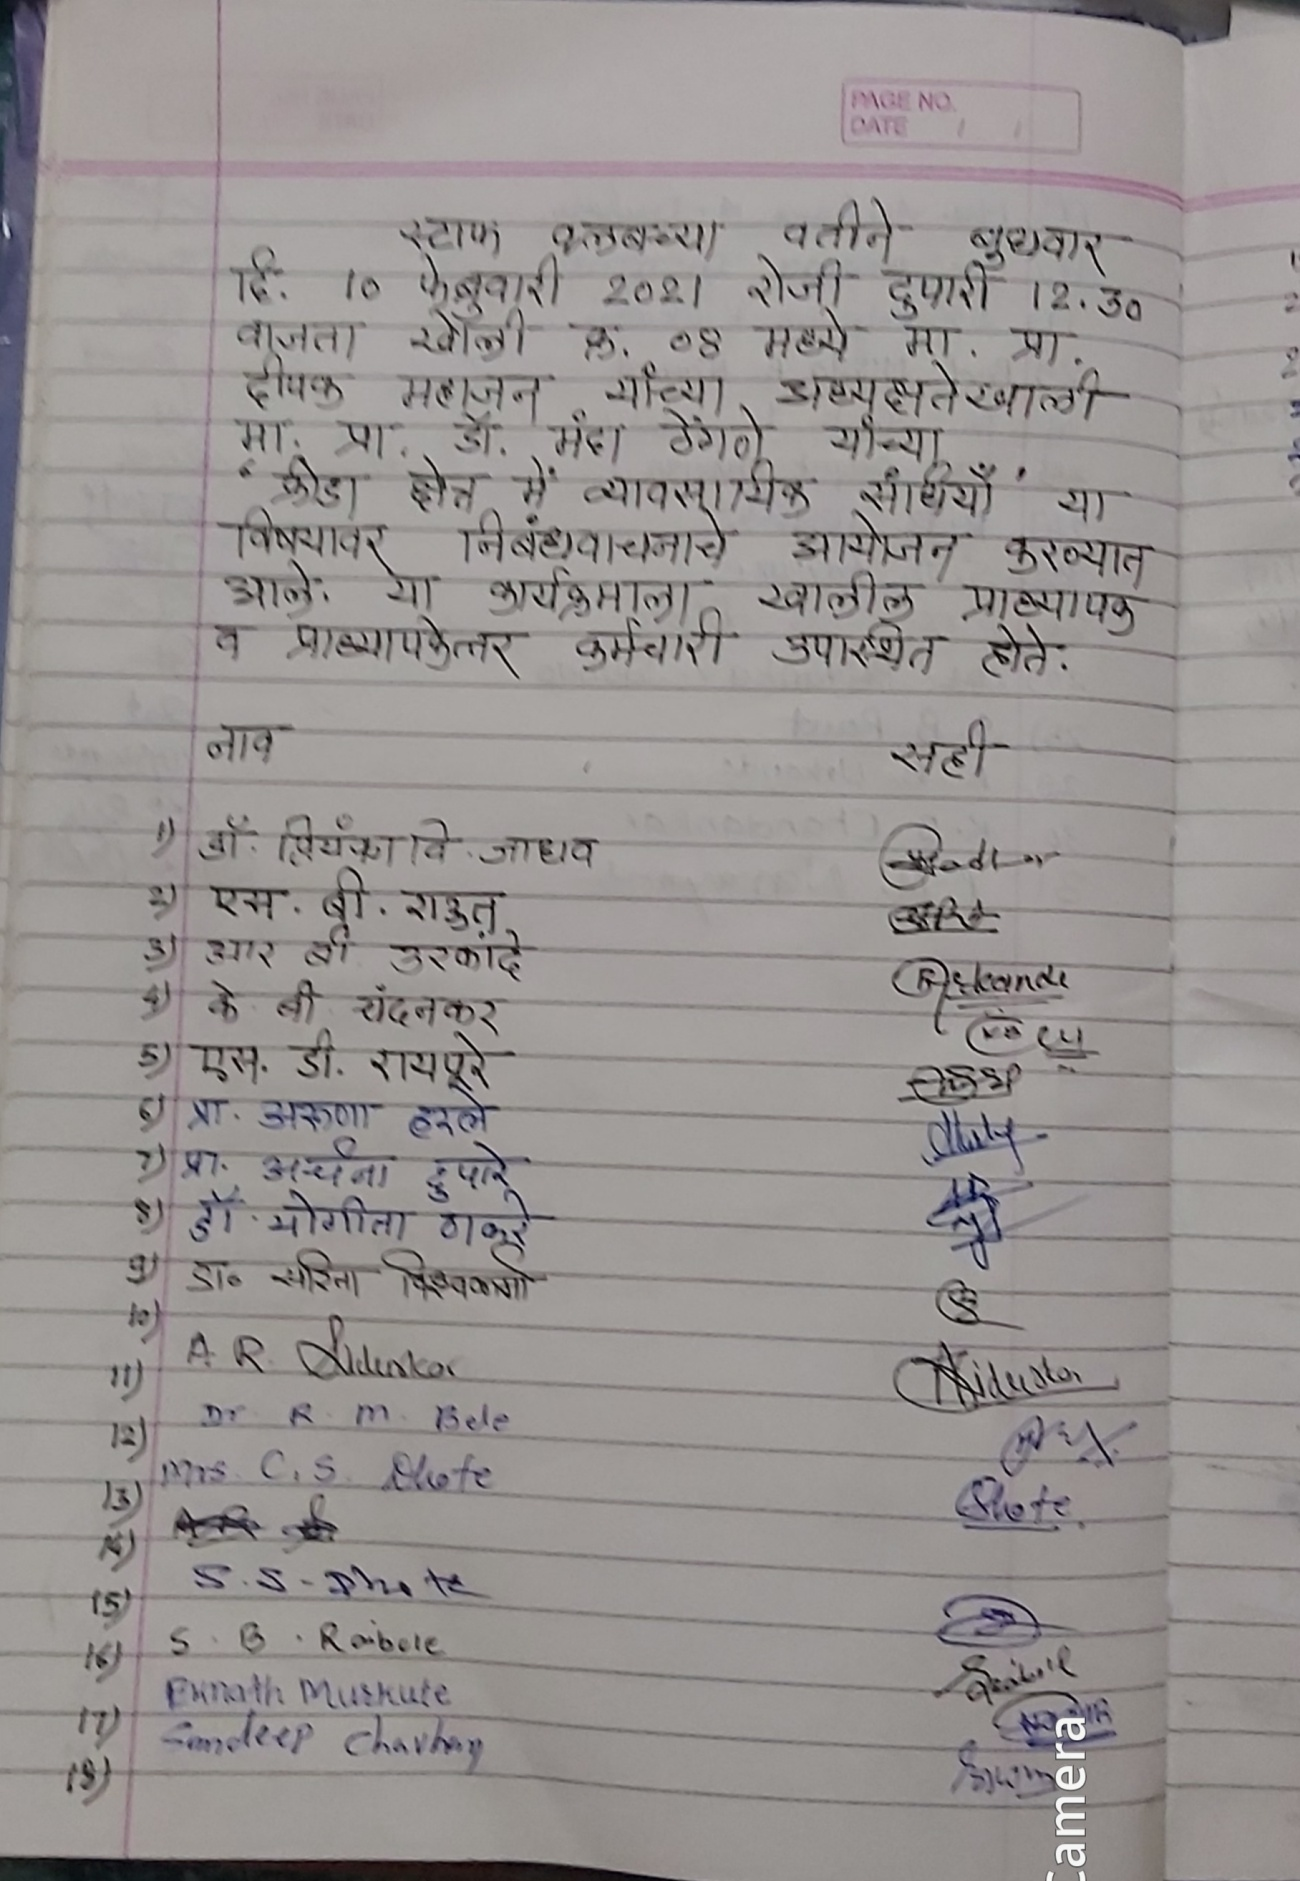 PAGE NO.
DATE / /
स्टाफ क्लबच्या वतीने बुधवार
दि. 10 फेब्रुवारी 2021 रोजी दुपारी 12.30
वाजता खोली क्र. 08 मध्ये मा. प्रा.
दीपक महाजन यांच्या अध्यक्षतेखाली
मा. प्रा. डॉ. मंदा ठेंगणे यांच्या
" क्रीडा क्षेत्र में व्यावसायिक संधियाँ " या
विषयावर निबंधवाचनाचे आयोजन करण्यात
आले. या कार्यक्रमाला खालील प्राध्यापक
व प्राध्यापकेत्तर कर्मचारी उपस्थित होते.
नाव सही
1) डॉ. प्रियंका वि. जाधव
2) एस. बी. राऊत
3) आर बी उरकांदे
4) के बी चंदनकर
5) एस. डी. रायपूरे
6) प्रा. अरुणा हरले
7) प्रा. अर्चना दुपारे
8) डॉ. योगीता ठाकरे
9) डा० सरिता विश्वकर्मा
10)
A. R.
11)
Dr. R. M. Bele
12)
Mrs. C. S. Dhote Dhote
13)
14)
S. S. Dhote
15)
S. B. Raibole
16)
Eknath Murkute
17)
Sandeep Chavhan
18)
Camera